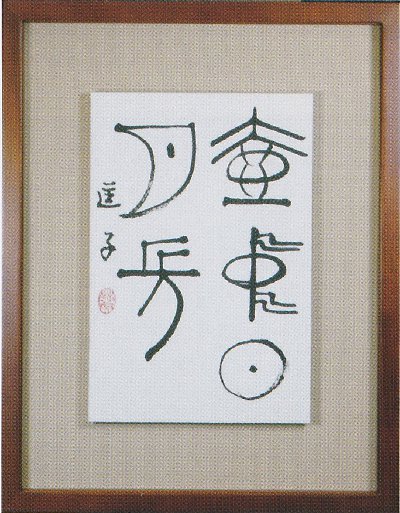 壺中日
月長
子